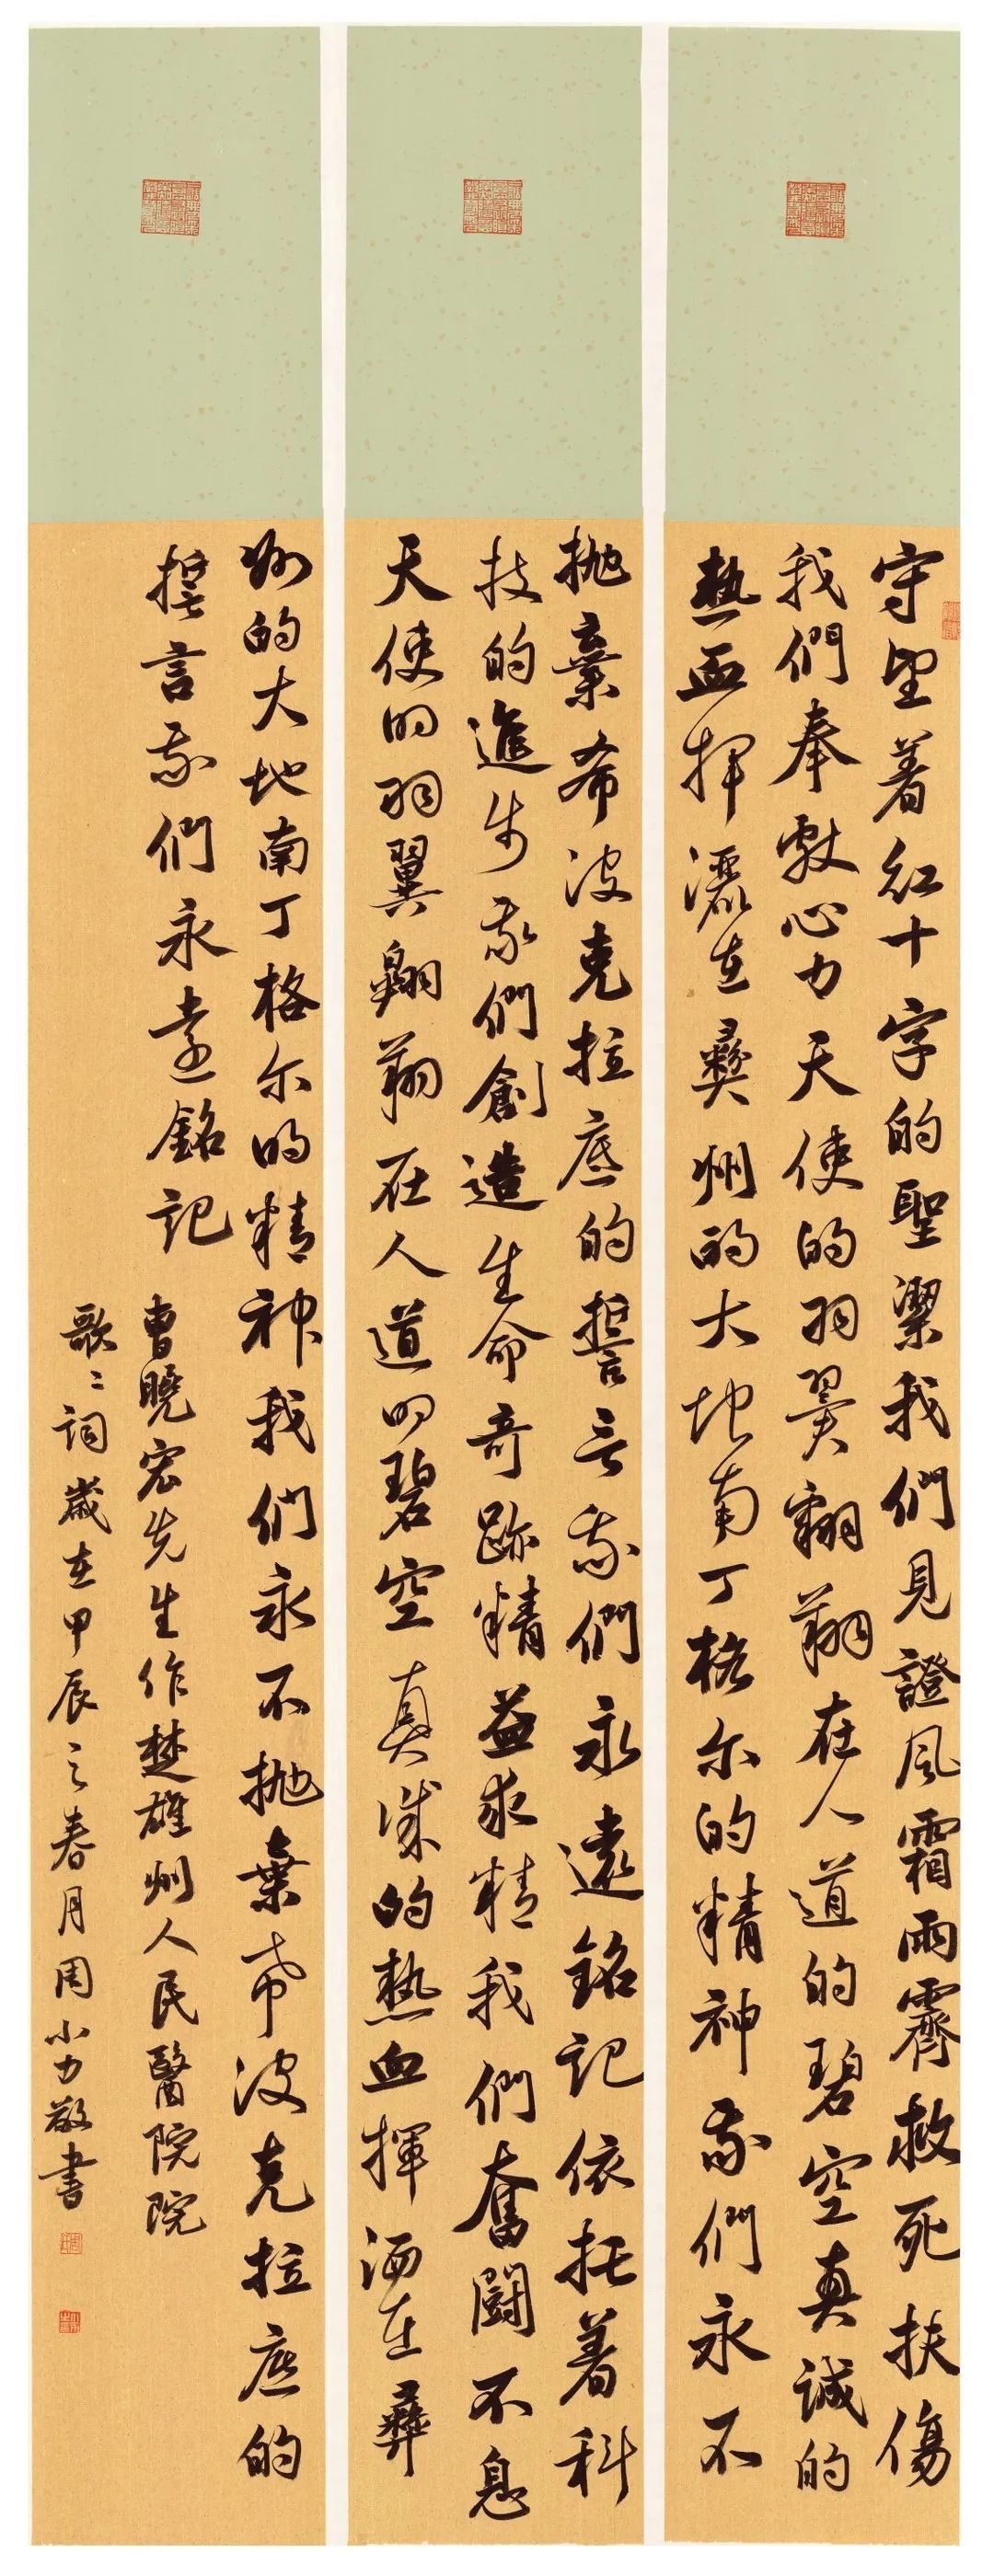 守望着红十字的聖潔我們見證風霜雨霽救死扶傷
我們奉獻心力天使的羽翼翱翔在人道的碧空真誠的
熱血揮灑在彝州的大地南丁格尔的精神我們永不
抛棄希波克拉底的誓言我們永遠銘記依托着科
技的進步我們創造生命奇跡精益求精我們奮鬪不息
天使的羽翼翱翔在人道的碧空真诚的熱血揮洒在彝
州的大地南丁格尔的精神我们永不抛棄希波克拉底的
誓言我們永遠銘記
曹曉宏先生作楚雄州人民醫院院
歌歌詞歲在甲辰之春月周小力敬書